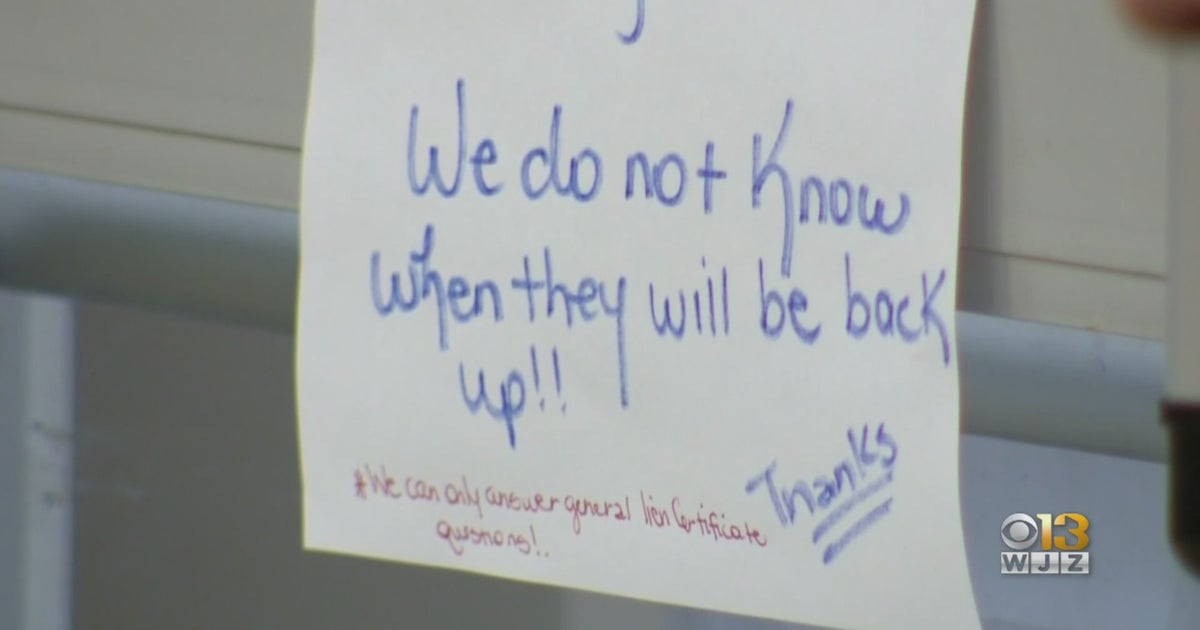 We do not Know
when they will be back
up!!
Thanks
*We can only answer general lien Certificate
questions!..
13
WJZ